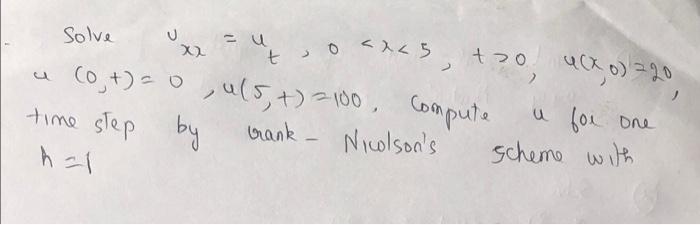 Solve u_xx = u_t, 0 < x < 5, t > 0, u(x,0) = 20,
u (0,t) = 0, u(5,t) = 100. Compute u for one
time step by crank - Nicolson's scheme with
h = 1